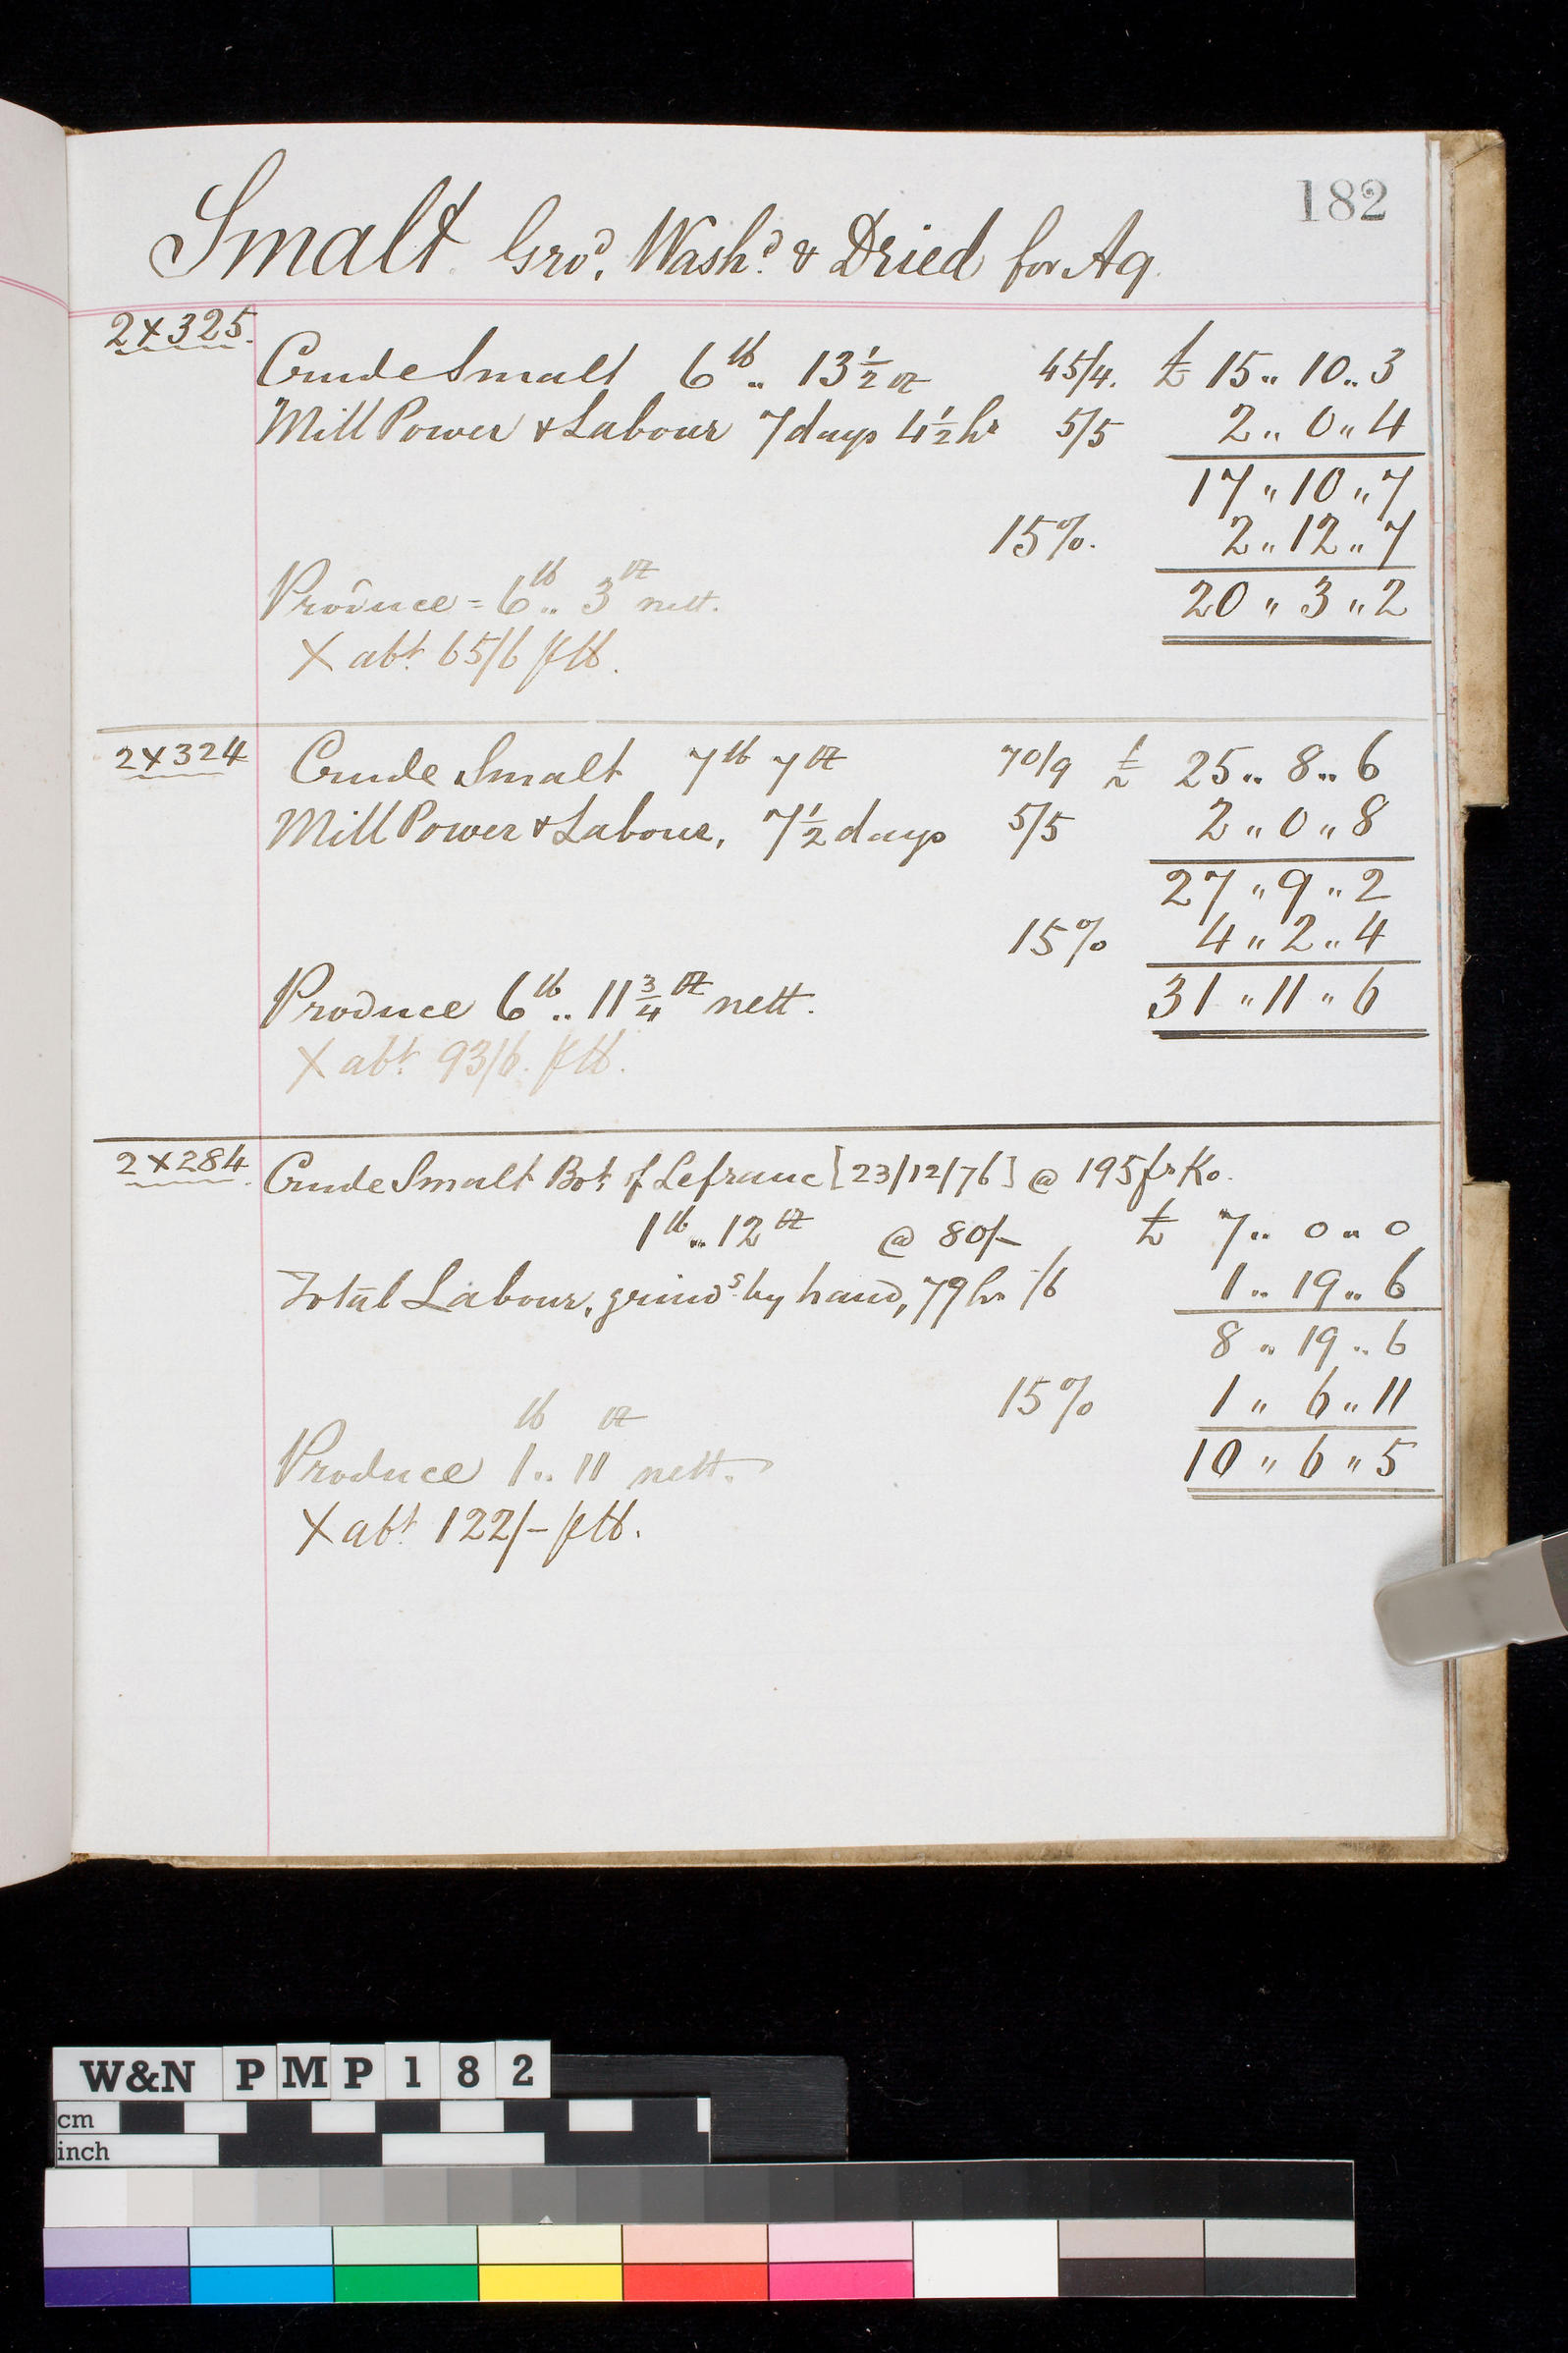 182
Smalt Gro.d, Wash.d & Dried for Aq
2X325.
Crude Smalt 6 lb .. 13 1/2 oz 45/4. £ 15 .. 10 .. 3
Mill Power & Labour 7 days 4 1/2 hrs 5/5 2 .. 0 .. 4
17 .. 10 .. 7
15%. 2 .. 12 .. 7
Produce = 6 lb .. 3 oz nett. 20 .. 3 .. 2
X abt. 65/6 p lb.
2X324
Crude Smalt 7 lb 7 oz 70/9 £ 25 .. 8 .. 6
Mill Power & Labour, 7 1/2 days 5/5 2 .. 0 .. 8
27 .. 9 .. 2
15% 4 .. 2 .. 4
Produce 6 lb .. 11 3/4 oz nett. 31 .. 11 .. 6
X abt. 93/6. p lb.
2X284.
Crude Smalt Bot. of Lefranc [23/12/76] @ 195 fr Ko.
1 lb .. 12 oz @ 80/- £ 7 .. 0 .. 0
Total Labour, grindg by hand, 79 hrs /6 1 .. 19 .. 6
8 .. 19 .. 6
15% 1 .. 6 .. 11
Produce 1 lb .. 11 oz nett. 10 .. 6 .. 5
X abt. 122/- p lb.
W&N PMP182
cm
inch